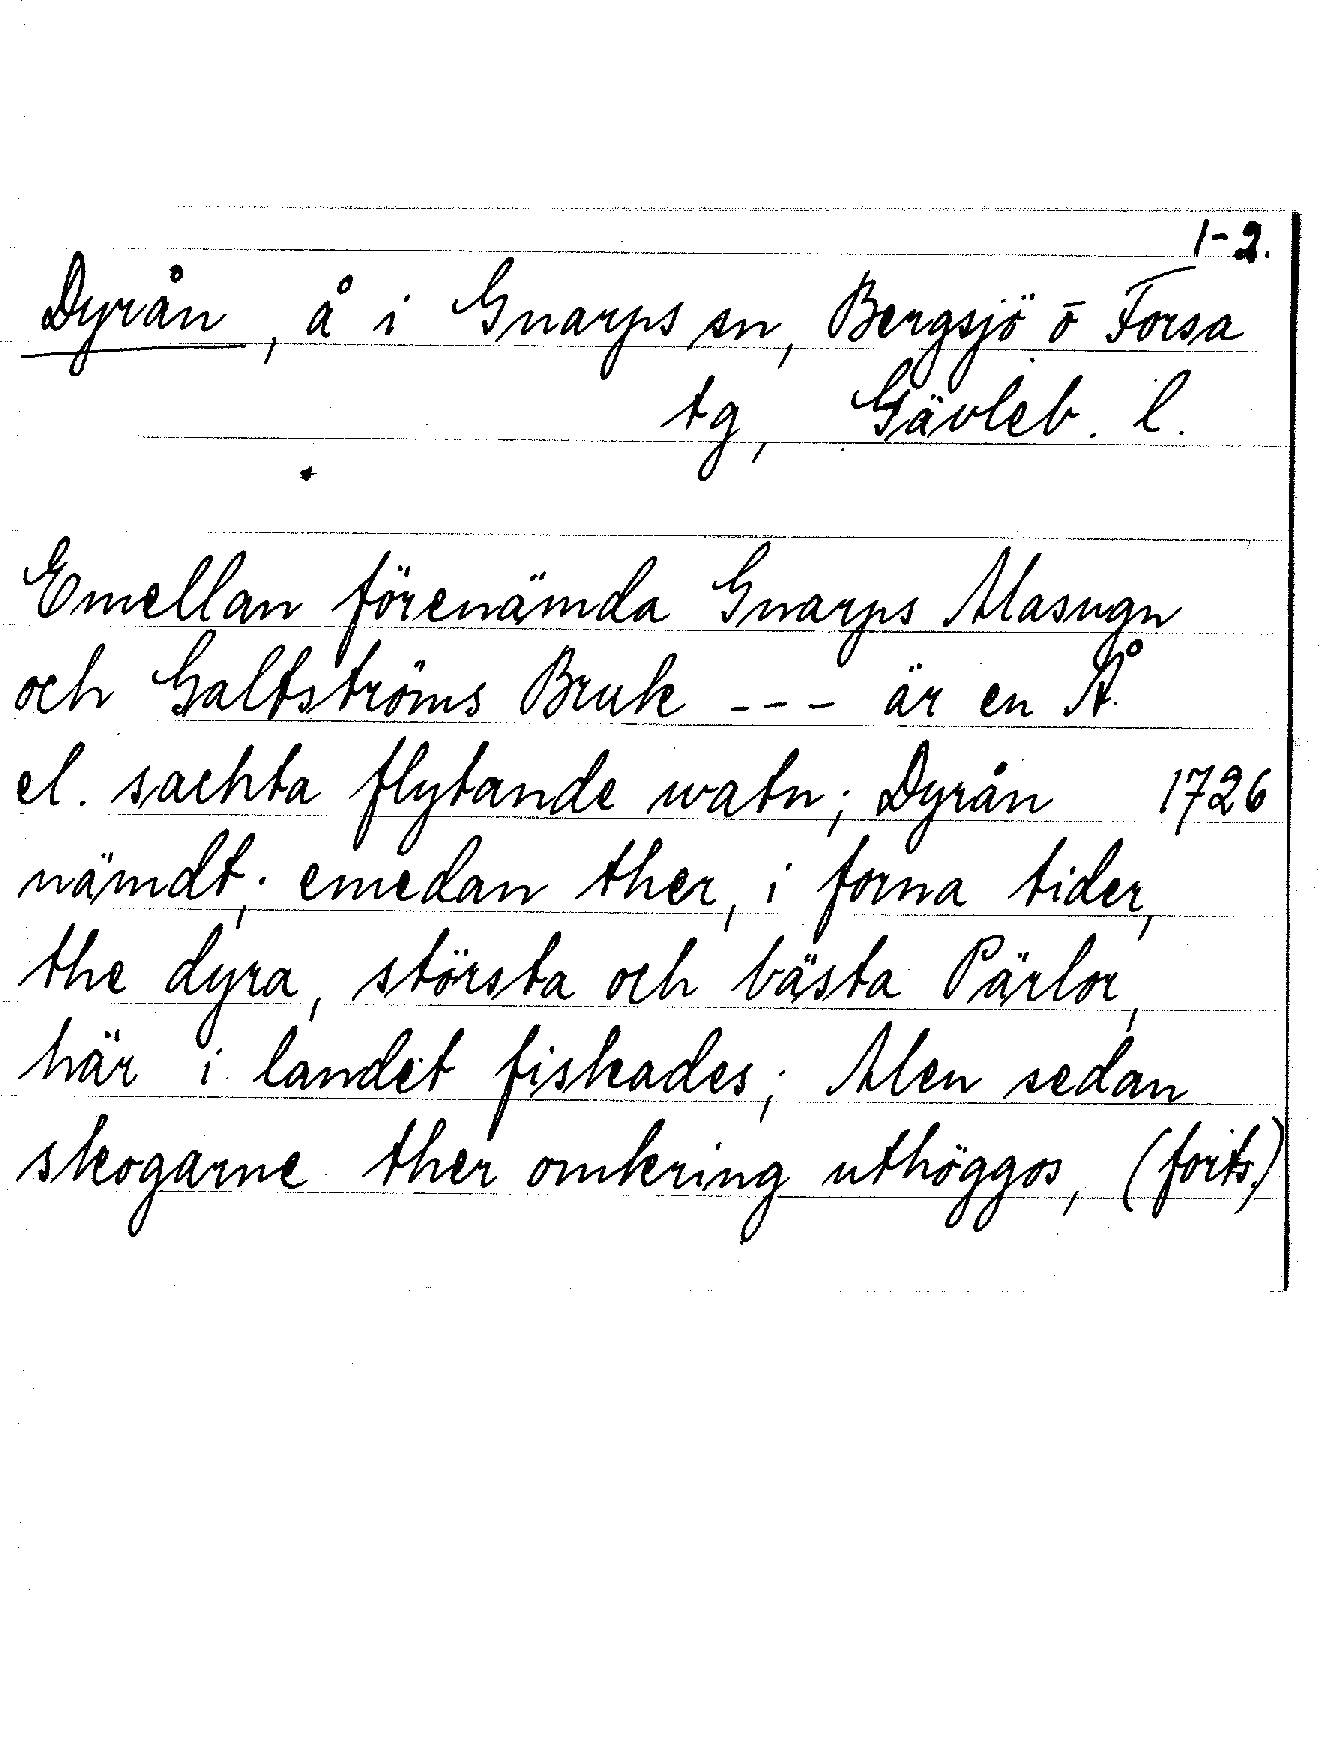 1-2.
Dyrån, å i Gnarps sn, Bergsjö ō Forsa
tg, Gävleb. l.
Emellan förenämda Gnarps Masugn
och Galtströms Bruk --- är en Å
el. sachta flytande watn; Dyrån 1726
nämdt; emedan ther, i forna tider,
the dyra, största och bästa Pärlor,
här i landet fiskades; Men sedan
skogarne ther omkring uthöggos, (forts.)